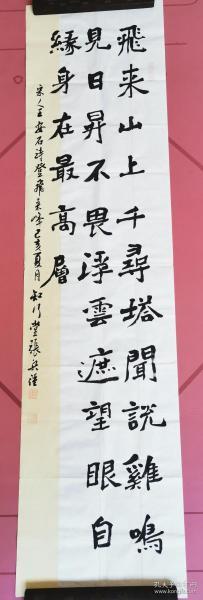 飛来山上千尋塔聞説雞鳴
見日昇不畏浮雲遮望眼自
緣身在最高層
宋人王安石詩登飛来峰己亥夏月
知行堂張
孔夫子旧书网